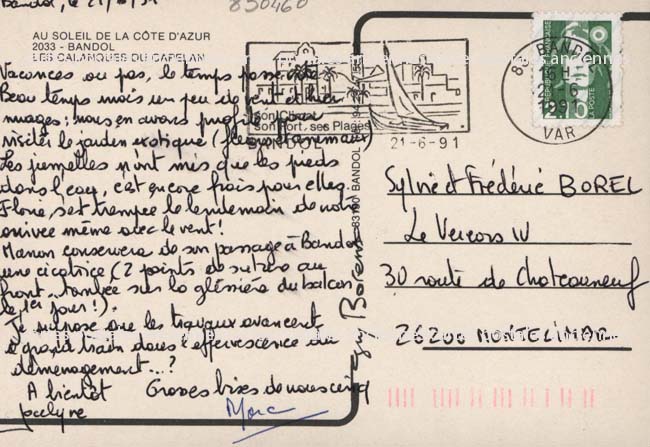 Bandol, le 21/6/91
830460
AU SOLEIL DE LA CÔTE D'AZUR
2033 - BANDOL
LES CALANQUES DU CAPELAN
Vacances ou pas, le temps passe vite
Beau temps mais un peu de vent et hier
nuages : nous en avons profité pour
visiter le jardin exotique (fleurs + animaux)
Les jumelles n'ont mis que les pieds
dans l'eau, c'est encore frais pour elles.
Florie s'est trempée le lendemain de notre
arrivée même avec le vent !
Manon conservera de son passage à Bandol
une cicatrice (2 points de suture au
front... tombée sur la glissière du balcon
le 1er jour !).
Je suppose que les travaux avancent
à grand train dans l'effervescence du
déménagement...?
A bientôt Grosses bises de nous cinq
Jocelyne Marc
son Port, ses Plages
BANDOL
21-6-91
83 BANDOL
16 H
21-6
1991
VAR
LA POSTE
83150 BANDOL
Sylvie et Frédéric BOREL
Le Vercors W
30 route de Chateauneuf
26200 MONTELIMAR